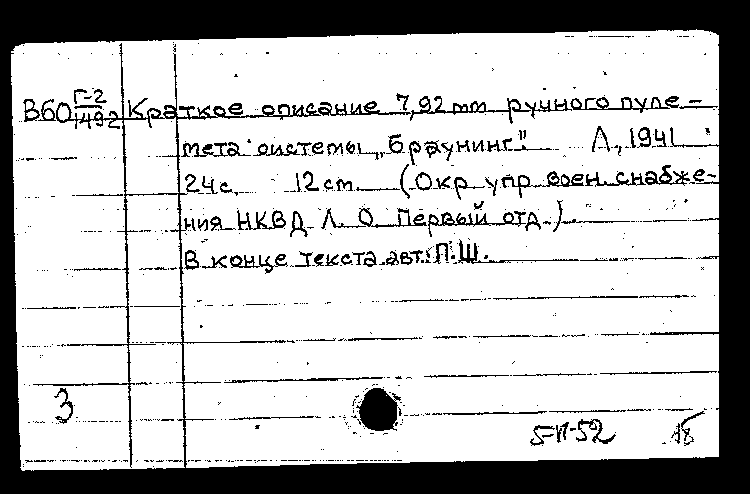 ВбО Г-2/1492 Краткое описание 7,92 mm ручного пуле-
мета системы „Браунинг". Л., 1941
24 с. 12 cm. (Окр упр воен. снабже-
ния НКВД Л. О. Первый отд.).
В конце текста авт: П.Ш.
3
5-II-52